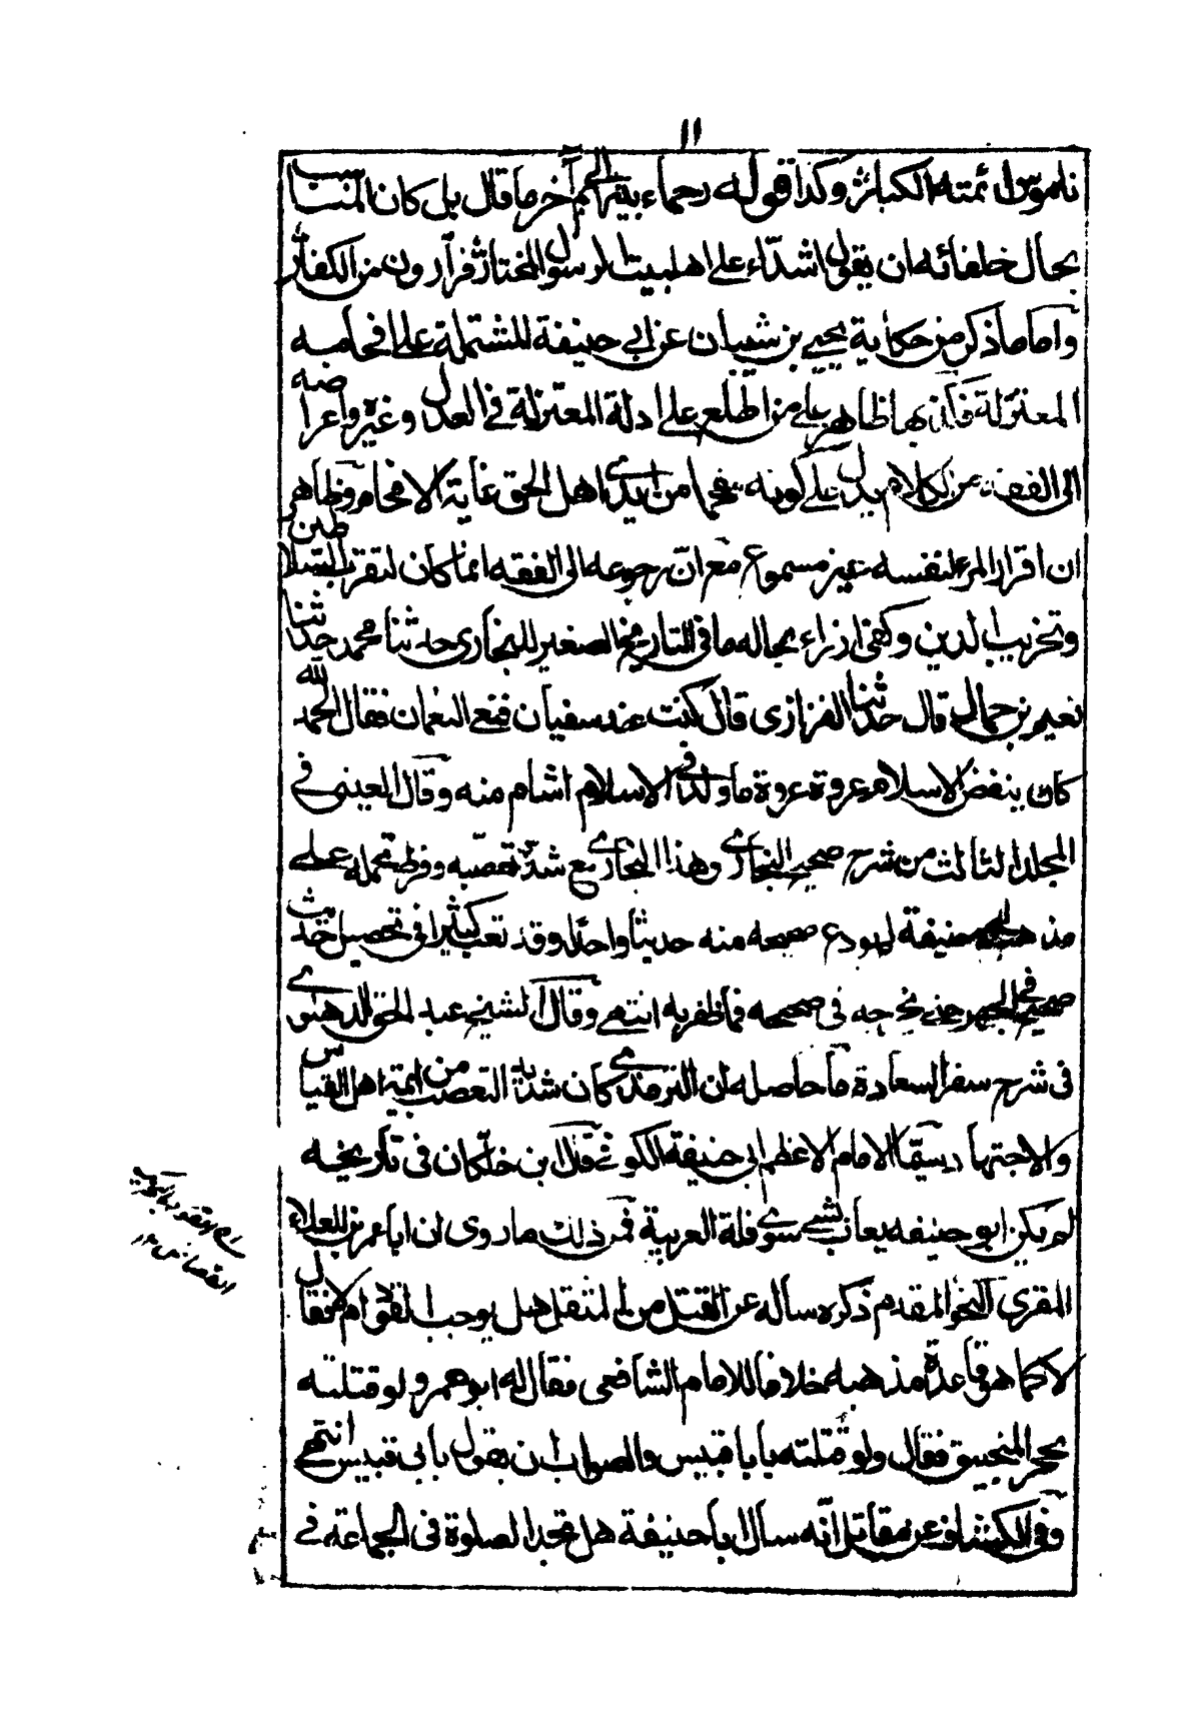 ١١
ناموس ائمته الكبائر وكذا قوله رحماء بينهم الخ آخر ما قال بل كان المناسب
بحال خلفائه ان يقول اشداء على اهل بيت الرسول المختار فرارون من الكفار
واما ما ذكر من حكاية يحيى بن شيبان عن ابي حنيفة المشتملة على افحامه
المعتزلة فكذبها ظاهر على من اطلع على ادلة المعتزلة في العدل وغيره واعراضه
الى الفقه عن الكلام يدل على كونه مفحما من ايدي اهل الحق غاية الافحام وظاهر
ان اقرار المرء لنفسه غير مسموع مع ان رجوعه الى الفقه انما كان لتقرب السلاطين
وتخريب الدين وكفى ازراء بحاله ما في التاريخ الصغير للبخاري حدثنا محمد حدثنا
نعيم بن حماد قال حدثنا الفزازى قال كنت عند سفيان فنعي النعمان فقال الحمد لله
كان ينقض الاسلام عروة عروة ما ولد في الاسلام اشام منه وقال العيني في
المجلد الثالث من شرح صحيح البخاري وهذا البخاري مع شدة تعصبه وفرط تحمله على
مذهب ابي حنيفة لم يودع صحيحه منه حديثا واحدا وقد تعب كثيرا في تحصيل حديث
صحيح في الجهر حتى يخرجه في صحيحه فما ظفر به انتهى وقال الشيخ عبد الحق الدهلوي
في شرح سفر السعادة ما حاصله ان الترمذي كان شديد التعصب من ايمة اهل القياس
والاجتهاد سيما الامام الاعظم ابي حنيفة الكوفي قال ابن خلكان في تاريخه
لم يكن ابو حنيفه يعاب بشيء سوى قلة العربية فمن ذلك ما روى ان ابا عمر بن العلاء
المقري النحو المقدم ذكره ساله عن القتل من المثقل هل يوجب القود ام لا فقال
لا كما هو قاعدة مذهبه خلافا للامام الشافعى فقال له ابو عمرو لو قتلته
بحجر المنجنيق فقال ولو قتلته بابا قبيس والصواب ان يقول بابي قبيس انتهى
وفي الكشاف عن مقاتل انه سال ابا حنيفة هل تجد الصلوة في الجماعة في